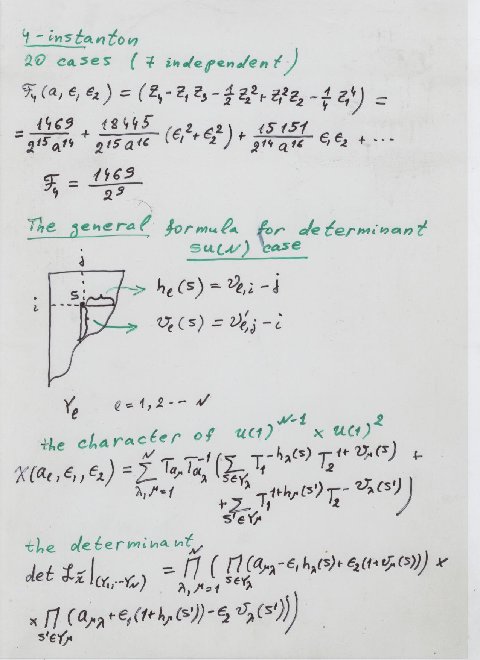 4-instanton
20 cases (7 independent)
F₄(a, ϵ, ϵ₂) = (Z₄ - Z₁Z₃ - 1/2 Z₂² + Z₁²Z₂ - 1/4 Z₁⁴) =
= 1469/2¹⁵a¹⁴ + 18445/2¹⁵a¹⁶ (ϵ₁² + ϵ₂²) + 15151/2¹⁴a¹⁶ ϵ₁ϵ₂ + ...
F₄ = 1469/2⁹
The general formula for determinant
SU(N) case
j
i s h_e(s) = ν_{e,i} - j
v_e(s) = ν'_{e,j} - i
Y_e e = 1,2 -- N
the character of U(1)^{N-1} × U(1)²
χ(a_e, ϵ₁, ϵ₂) = Σ_{λ,μ=1}^{N} T_{aμ} T_{aλ}^{-1} (Σ_{s∈Y_λ} T₁^{-h_λ(s)} T₂^{1+v_μ(s)} +
+ Σ_{s'∈Y_μ} T₁^{1+h_μ(s')} T₂^{-v_λ(s')})
the determinant
det L_x̃ |_{(Y₁,..Y_N)} = Π_{λ,μ=1}^{N} (Π_{s∈Y_λ} (a_{μλ} - ϵ₁h_λ(s) + ϵ₂(1+v_μ(s))) ×
× Π_{s'∈Y_μ} (a_{μλ} + ϵ₁(1+h_μ(s')) - ϵ₂ v_λ(s')))